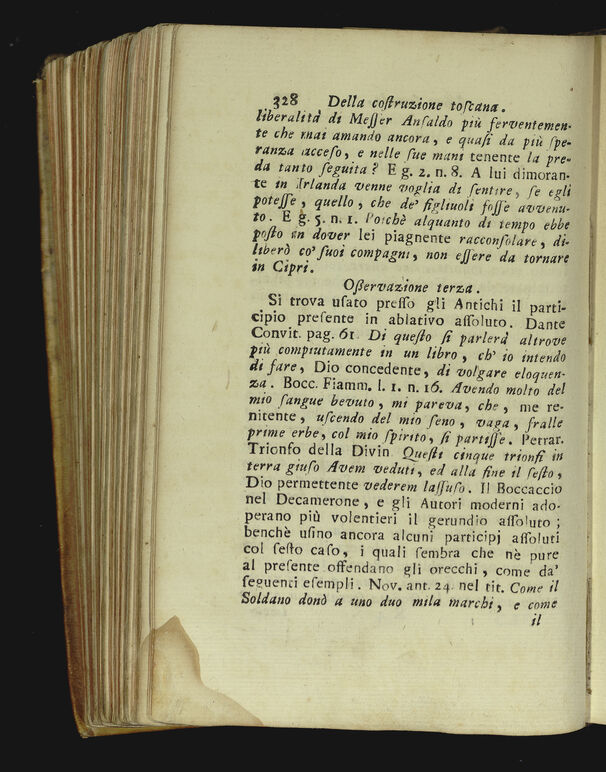 328 Della coſtruzione toſcana.
liberalità di Meſſer Anſaldo più ferventemen-
te che mai amando ancora, e quaſi da più ſpe-
ranza acceſo, e nelle ſue mani tenente la pre-
da tanto ſeguita? E g. 2. n. 8. A lui dimoran-
te in Irlanda venne voglia di ſentire, ſe egli
poteſſe, quello, che de' figliuoli foſſe avvenu-
to. E g. 5. n. 1. Poichè alquanto di tempo ebbe
poſto in dover lei piagnente racconſolare, di-
liberò co' ſuoi compagni, non eſſere da tornare
in Cipri.
Oſſervazione terza.
Si trova uſato preſſo gli Antichi il parti-
cipio preſente in ablativo aſſoluto. Dante
Convit. pag. 61. Di queſto ſi parlerà altrove
più compiutamente in un libro, ch' io intendo
di fare, Dio concedente, di volgare eloquen-
za. Bocc. Fiamm. l. 1. n. 16. Avendo molto del
mio ſangue bevuto, mi pareva, che, me re-
nitente, uſcendo del mio ſeno, vaga, fralle
prime erbe, col mio ſpirito, ſi partiſſe. Petrar.
Trionfo della Divin. Queſti cinque trionfi in
terra giuſo Avem veduti, ed alla fine il ſeſto,
Dio permettente vederem laſſuſo. Il Boccaccio
nel Decamerone, e gli Autori moderni ado-
perano più volentieri il gerundio aſſoluto;
benchè uſino ancora alcuni participj aſſoluti
col ſeſto caſo, i quali ſembra che nè pure
al preſente offendano gli orecchi, come da'
ſeguenti eſempli. Nov. ant. 24. nel tit. Come il
Soldano donò a uno duo mila marchi, e come
il